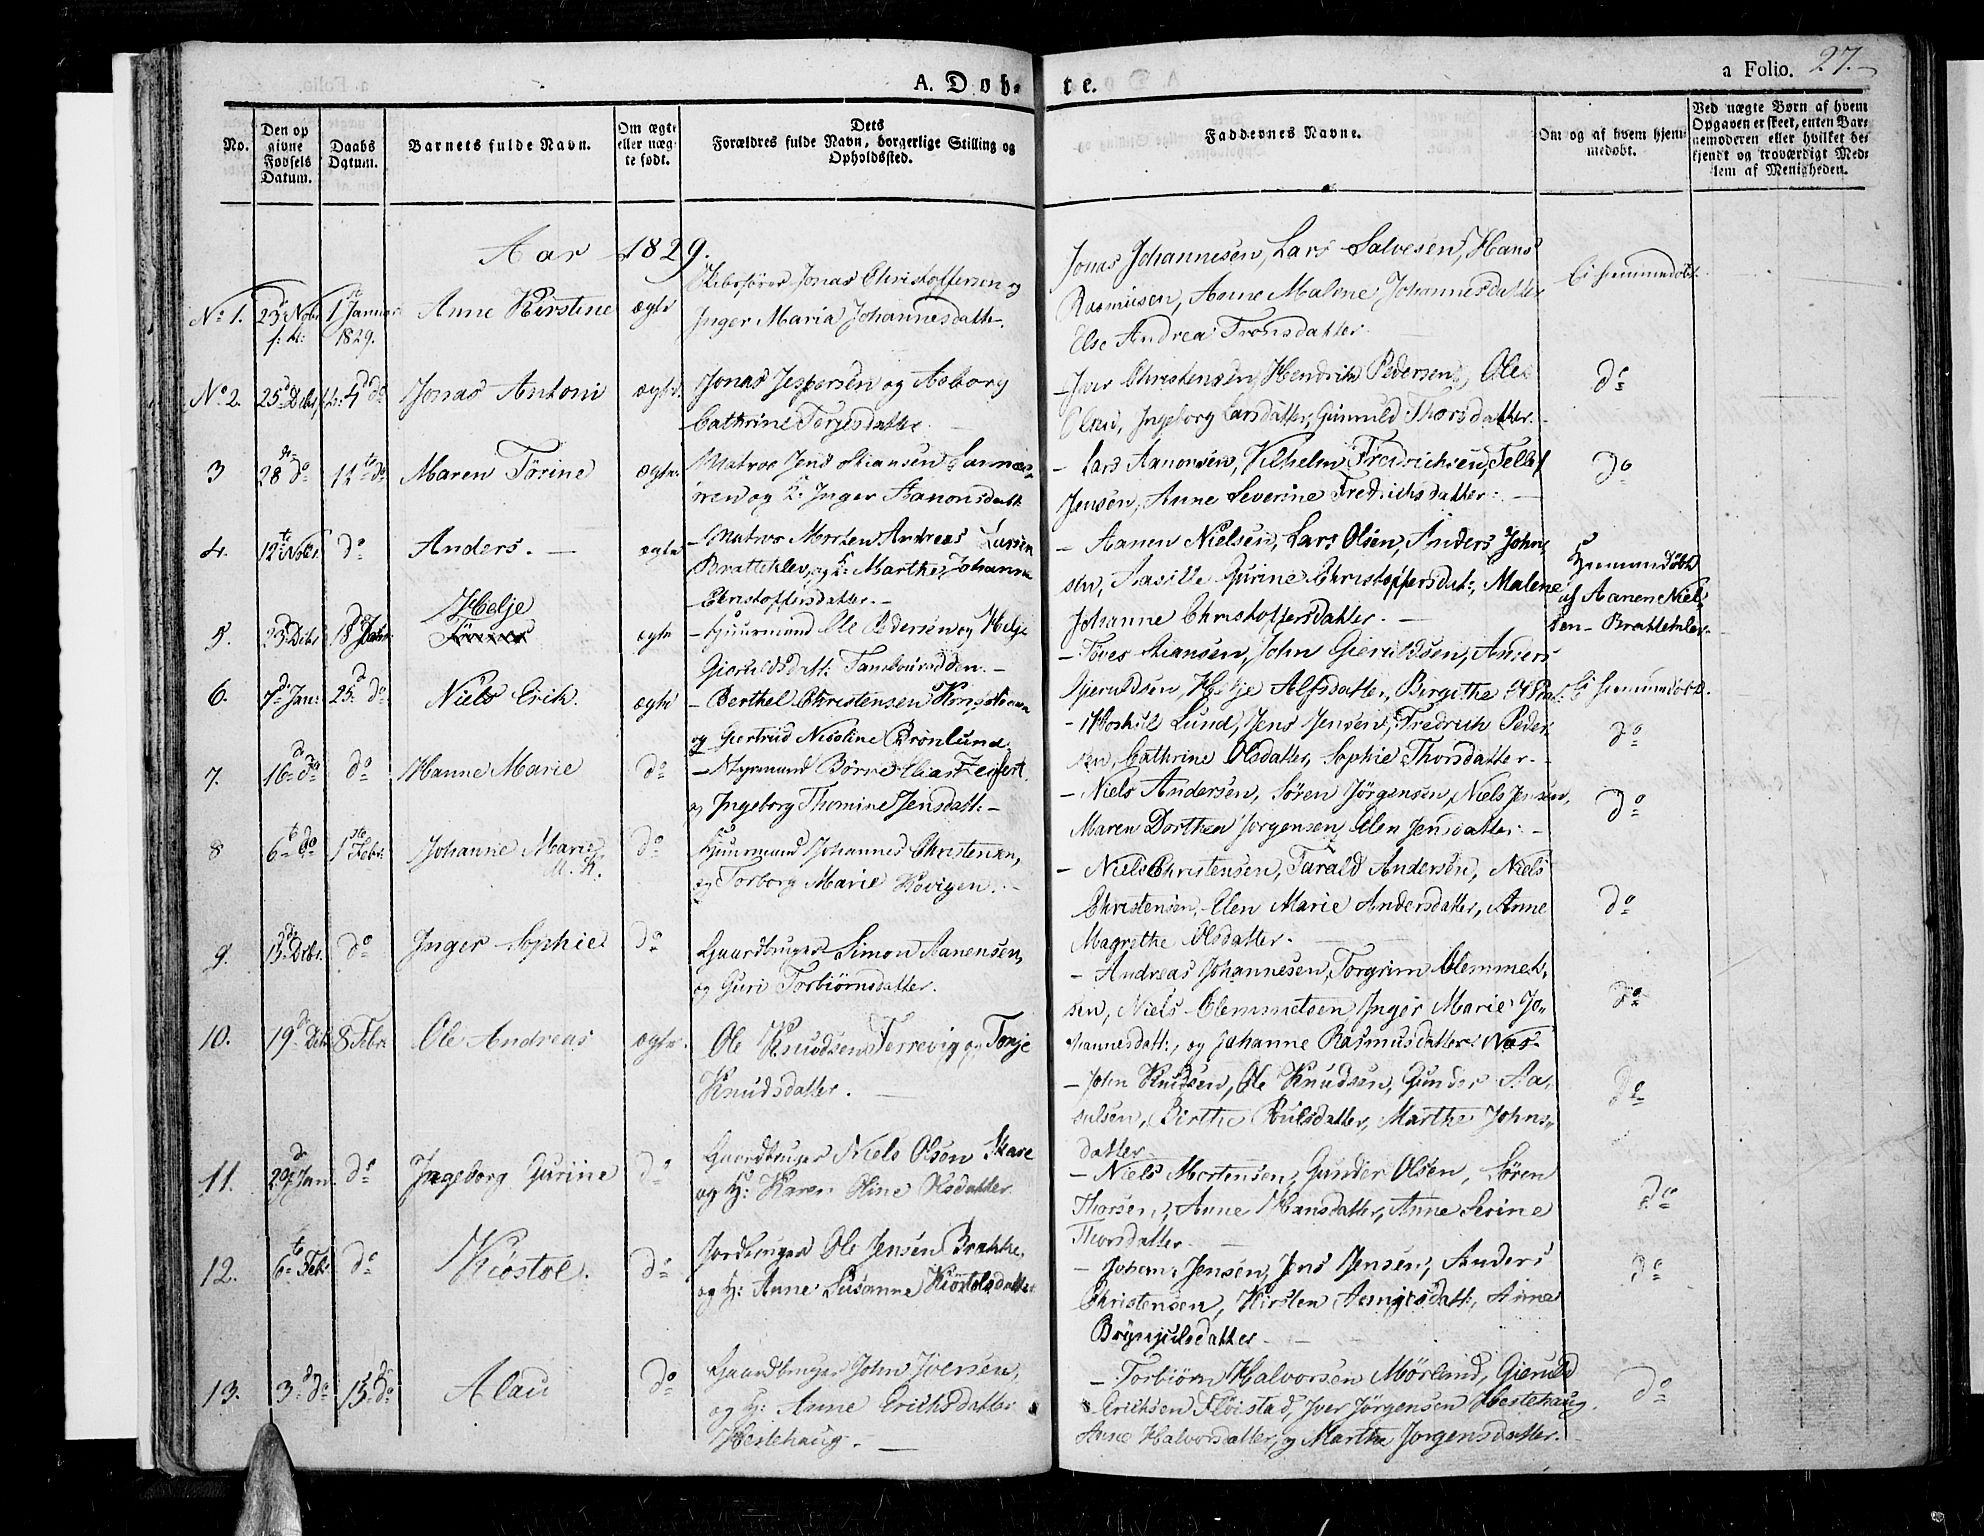 A. Döb-
te.
a Folio. 27.
No.
Den op givne Fødsels Datum.
Daabs Datum.
Barnets fulde Navn.
Om ægte eller uægte født.
Dets Forældres fulde Navn, borgerlige Stilling og Opholdssted.
Faddernes Navne.
Om og af hvem hjemmedøbt.
Ved uægte Børn af hvem Opgaven er skeet, enten Barnemoderen eller hvilket bekjendt og troværdigt Medlem af Menigheden.
Aar 1829.
No 1. 23 Nobr 1 Januar 1829. Anne Kirstine ægte
Jonas Christoffersen og
Inger Maria Johannesdatter.
Jonas Johannesen, Lars Salvesen, Hans
Rasmusen, Anne Malene Johannesdatter
Else Andrea Tronsdatter.
Ei hiemmedøbt
No 2. 25 Debr 4 do Jonas Antoni ægte.
Jonas Jespersen og Asborg
Cathrine Torgesdatter.
Iver Christensen, Hendrich Pedersen, Ole
Olsen, Ingeborg Larsdatter, Gunnuld Thorsdatter.
do
3 28 do 11te do Maren Tørine ægte.
Matros Jens Stiansen
og K. Inger Aanonsdatt.
- Lars Aanonsen, Vilhelm Fredrichsen, Tellef
Jensen, Anne Severine Fredrichsdatter.
do
4. 12te Nobr. do Anders. ægte
- Matros Morten Andreas Larsen
Bratteklev, og K: Marthe Johanne
Christoffersdatter.
- Aanen Nielsen, Lars Olsen, Anders John-
sen, Aasille Gurine Christoffersdat:, Malene
Johanne Christoffersdatter.
Hiemmedøbt
af Aanen Niel-
sen - Bratteklev.
5. 23 Debr 18 Jan: Helje ægte
- Huusmand Ole Pedersen og Helje
Gieruldsdatt:
- Toves Stiansen, John Gieruldsen, Anders
Gieruldsen, Helje Alfsdatter, Birgithe
Ei hiemmedøbt.
6. 7 Jan: 25 do Niels Erik. ægte
- Berthel Christensen
og Giertrud Nicoline Brønlund
Lund, Jens Jensen, Fredrich Peder-
sen, Cathrine Olsdatter, Sophie Thorsdatter.
do
7. 16 do do Hanne Marie do
Børre Elias Zeifert
og Ingeborg Thomine Jensdatt:
- Niels Andersen, Søren Jörgensen, Niels Jensen,
Maren Dorthea Jorgensen, Elen Jensdatter.
do
8 6te do 1ste Febr: Johanne Marie do
Huusmand Johannes Christensen,
og Torborg Marie
- Niels Christensen, Tarald Andersen, Niels
Christensen, Elen Marie Andersdatter, Anne
Magrethe Olsdatter.
do
9. 13 Debr. do Inger Sophie do
Gaardbruger Simon Aanensen,
og Guri Torbiørnsdatter.
- Andreas Johannesen, Torgrim Clemmet-
sen, Niels Clemmetsen, Inger Marie Jo-
hannesdatt:, og Johanne Rasmusdatter.
do
10. 19 Debr 8 Febr Ole Andreas ægte.
Ole Knudsen Torrevig og Tonje
Knudsdatter.
- John Knudsen, Ole Knudsen, Gunder Aa-
sulsen, Birthe Poulsdatter, Marthe Johns-
datter.
do
11. 29 Jan do Ingeborg Gurine do
Gaardbruger Niels Olsen Skare
og H: Karen Oline Olsdatter
- Niels Mortensen, Gunder Olsen, Søren
Thorsen, Anne Hansdatter, Anne Serine
Thorsdatter.
do
12. 6te Feb: do Kiøstol. do
Jordbruger Ole Jensen Brække,
og H: Anne Susanne Kiøstolsdatter
- Johan Jensen, Jens Jensen, Anders
Christensen, Kirsten Asmyesdatt:, Anne
Brynjulsdatter.
do
13. 3 do 15 do Alau do
Gaardbruger John Iversen,
og H: Anne Erichsdatter
Hestehaug.
- Torbiørn Halvorsen Mørland, Gieruld
Erichsen Fløistad, Iver Jörgensen Hestehaug,
Anne Halvorsdatter, og Marthe Jorgensdatter.
do